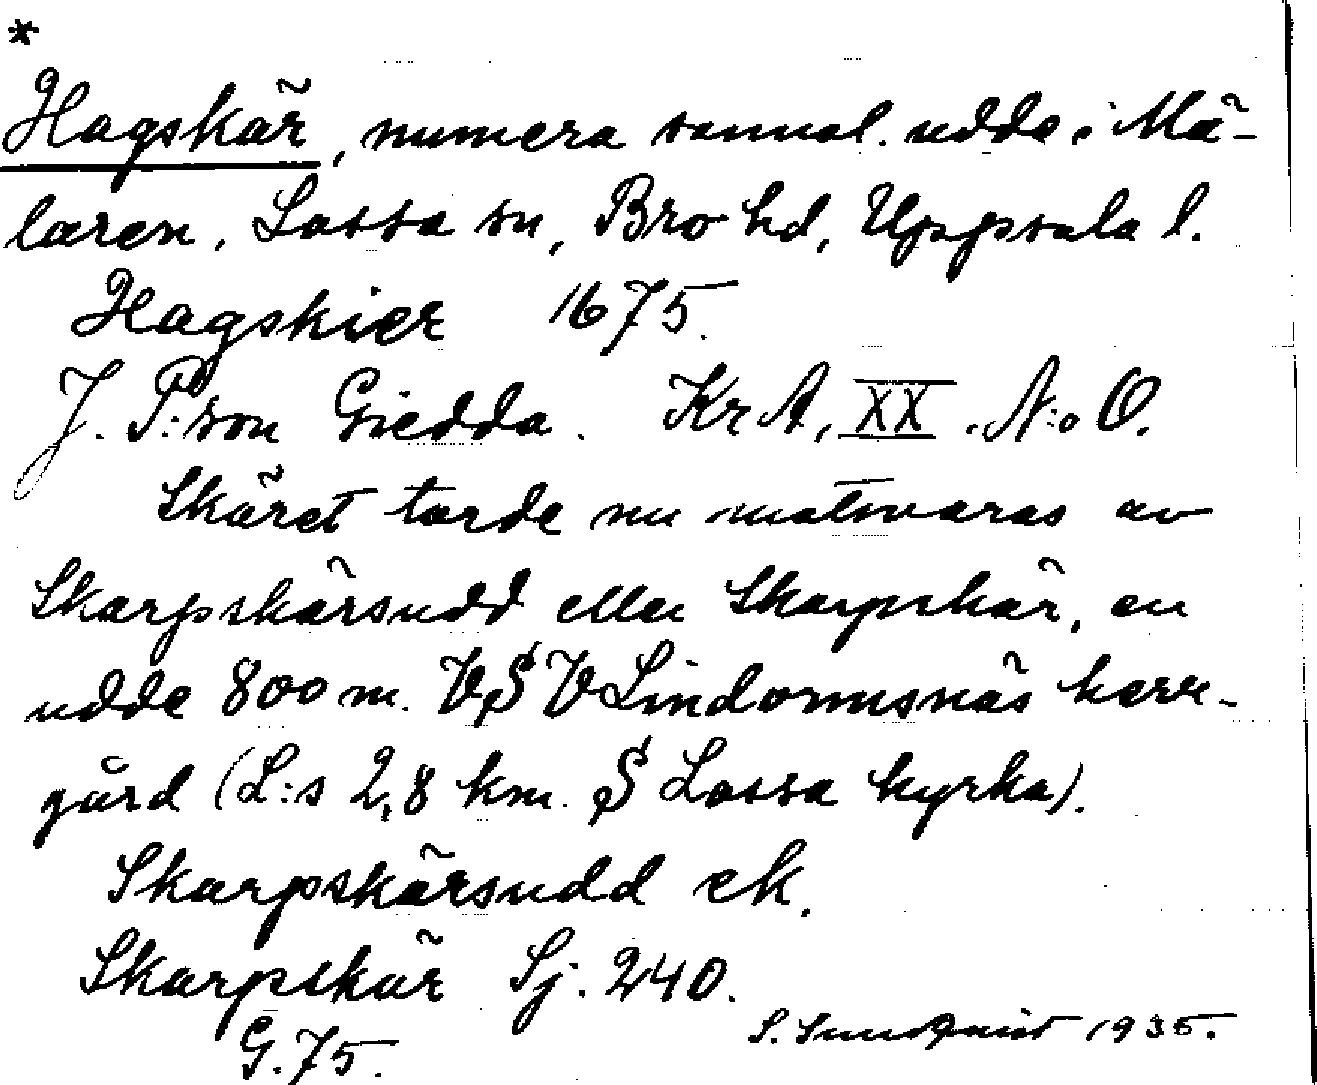 *
Hagskär, numera sannol. udde i Mä-
laren, Lossa sn, Bro hd, Uppsala l.
Hagskier 1675.
J. P:son Giedda. KrA, XX. N:o O.
Skäret torde nu motsvaras av
Skarpskärsudd eller Skarpskär, en
udde 800 m. VSV Lindormsnäs herr-
gård (L:s 2,8 km. S Lossa kyrka).
Skarpskärsudd ek.
Skarpskär Sj. 240.
G. 75.
S. Sundqvist 1935.